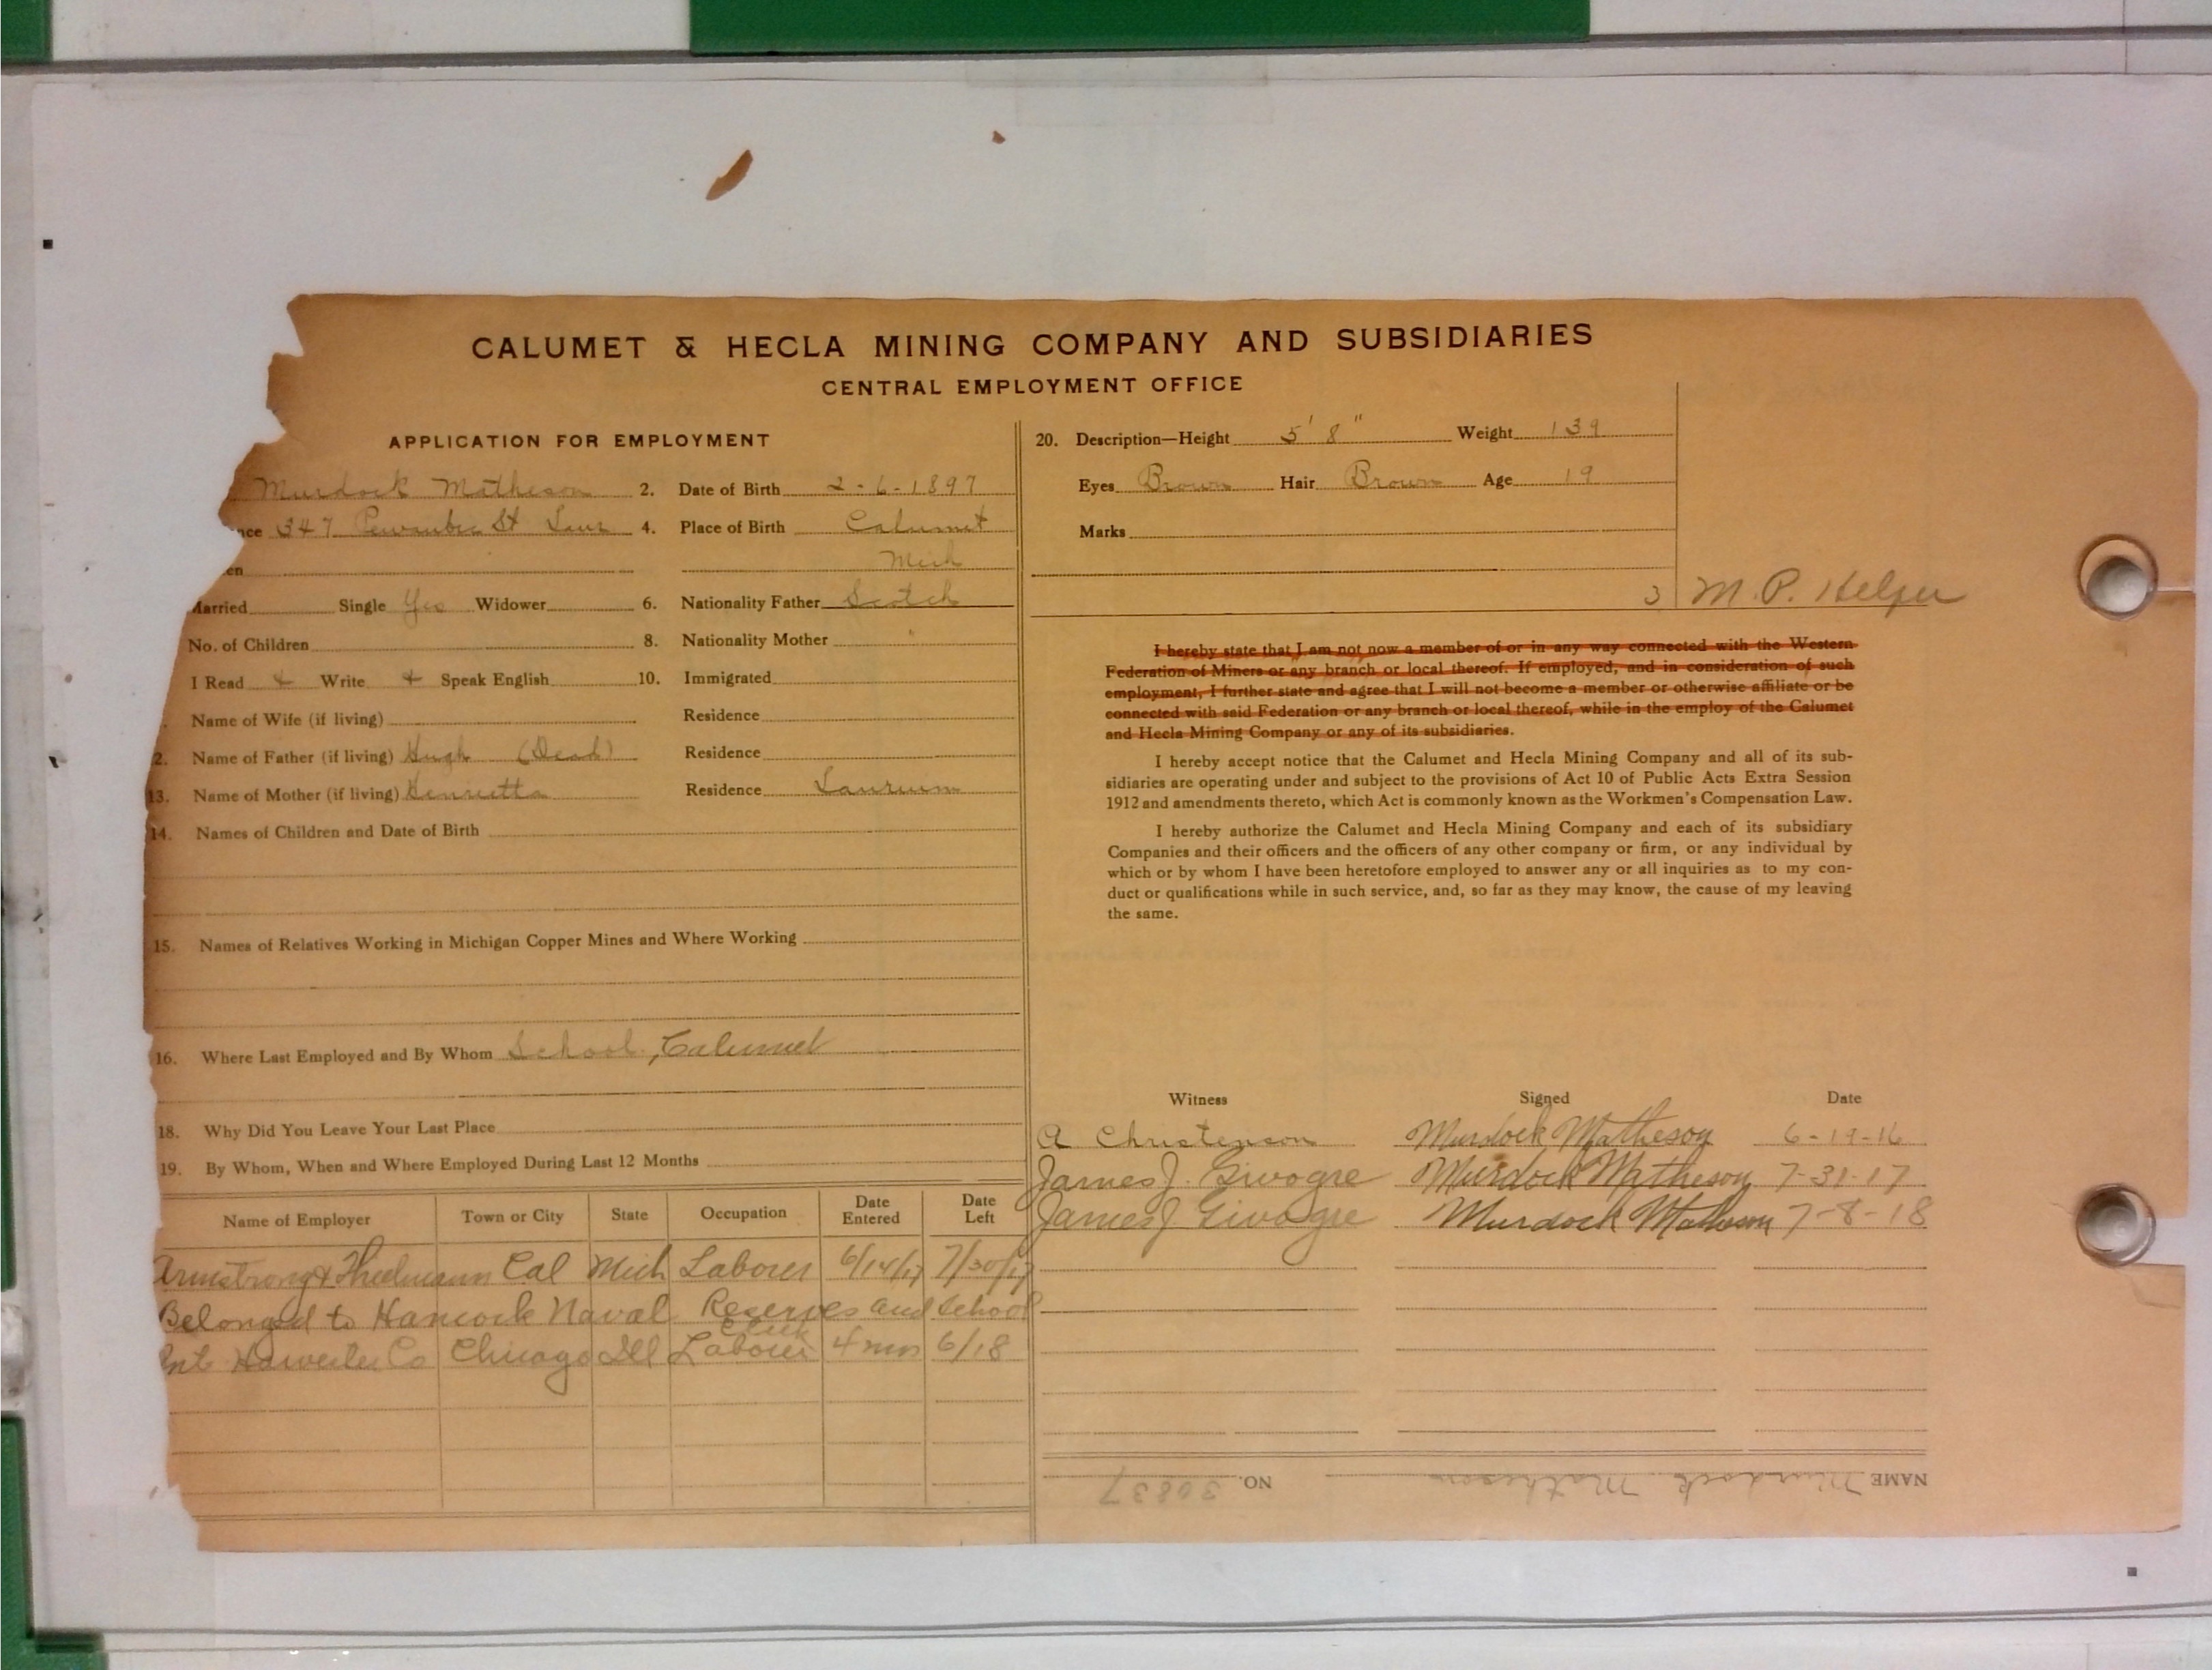 CALUMET & HECLA MINING COMPANY AND SUBSIDIARIES
CENTRAL EMPLOYMENT OFFICE
APPLICATION FOR EMPLOYMENT
Murdock Matheson 2. Date of Birth 2-6-1897
nce 347 Pewanbic St Laur 4. Place of Birth Calumet
en Mich
Married Single Yes Widower 6. Nationality Father Scotch
No. of Children 8. Nationality Mother "
I Read + Write + Speak English 10. Immigrated
Name of Wife (if living) Residence
2. Name of Father (if living) Hugh (Dead) Residence
13. Name of Mother (if living) Henrietta Residence Laurium
14. Names of Children and Date of Birth
15. Names of Relatives Working in Michigan Copper Mines and Where Working
16. Where Last Employed and By Whom School, Calumet
18. Why Did You Leave Your Last Place
19. By Whom, When and Where Employed During Last 12 Months
Name of Employer Town or City State Occupation Date Entered Date Left
Armstrong & Thielmann Cal Mich Laborer 6/14/17 7/30/17
Belonged to Hancock Naval Reserves and School
Clerk
Int Harvester Co Chicago Ill Laborer 4 mos 6/18
20. Description—Height 5' 8" Weight 139
Eyes Brown Hair Brown Age 19
Marks
3 M. P. Helper
I hereby state that I am not now a member of or in any way connected with the Western
Federation of Miners or any branch or local thereof. If employed, and in consideration of such
employment, I further state and agree that I will not become a member or otherwise affiliate or be
connected with said Federation or any branch or local thereof, while in the employ of the Calumet
and Hecla Mining Company or any of its subsidiaries.
I hereby accept notice that the Calumet and Hecla Mining Company and all of its sub-
sidiaries are operating under and subject to the provisions of Act 10 of Public Acts Extra Session
1912 and amendments thereto, which Act is commonly known as the Workmen's Compensation Law.
I hereby authorize the Calumet and Hecla Mining Company and each of its subsidiary
Companies and their officers and the officers of any other company or firm, or any individual by
which or by whom I have been heretofore employed to answer any or all inquiries as to my con-
duct or qualifications while in such service, and, so far as they may know, the cause of my leaving
the same.
Witness Signed Date
A Christenson Murdock Matheson 6-19-16
James J. Givogre Murdock Matheson 7-31-17
James J Givogre Murdock Matheson 7-8-18
NAME Murdock Matheson NO. 30837